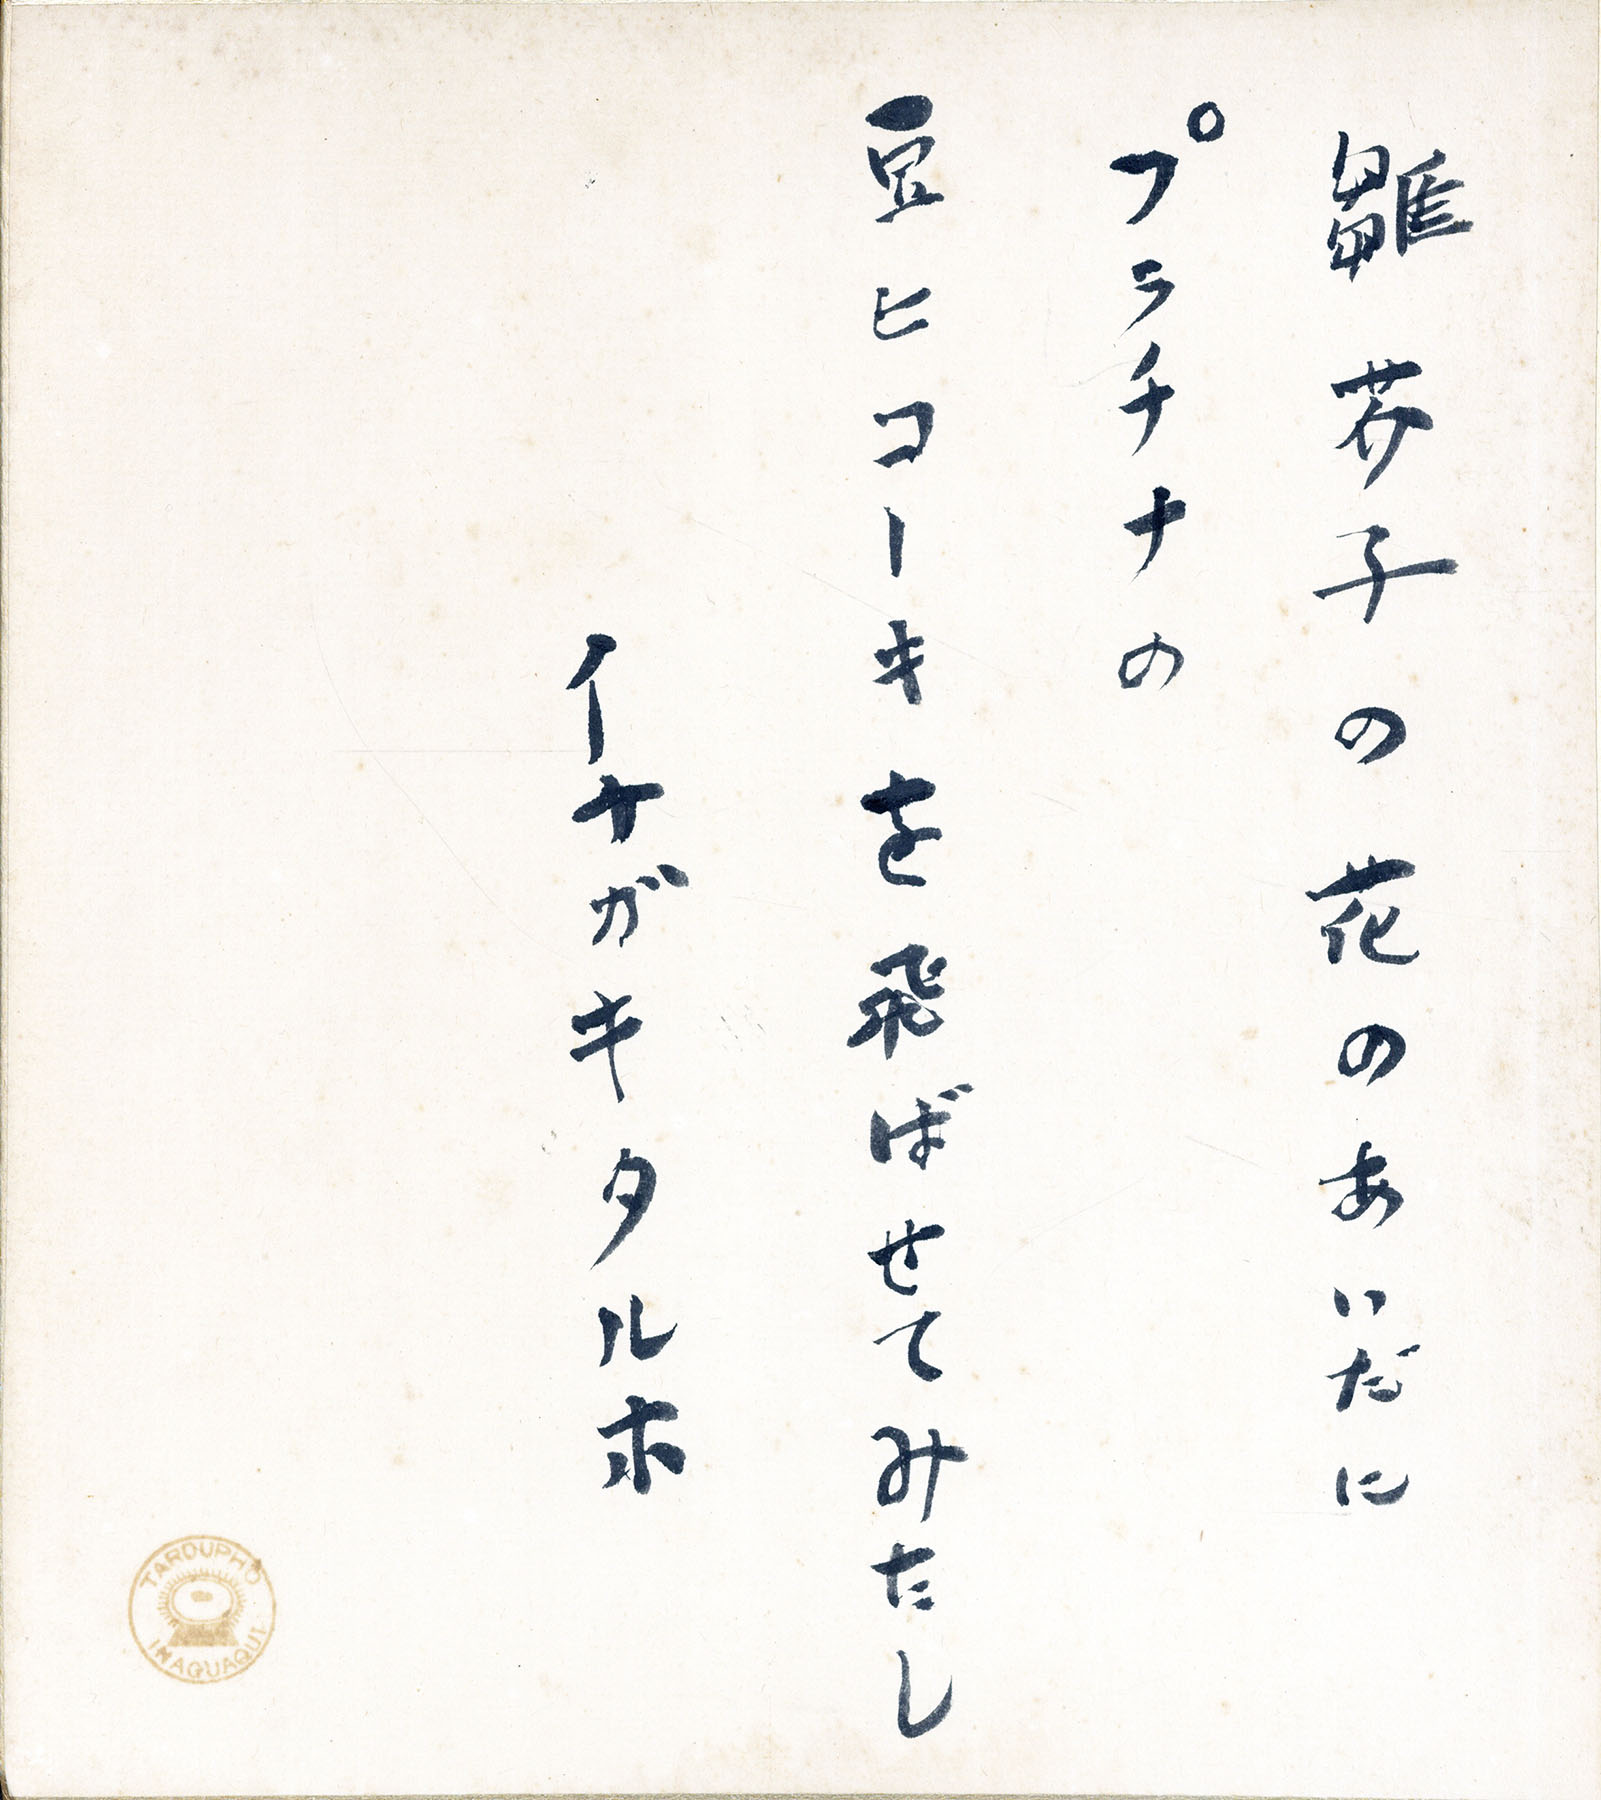 雛芥子の花のあいだに
プラチナの
豆ヒコーキを飛ばせてみたし
イナガキタルホ
TAROUPHO
INAGUAQUI